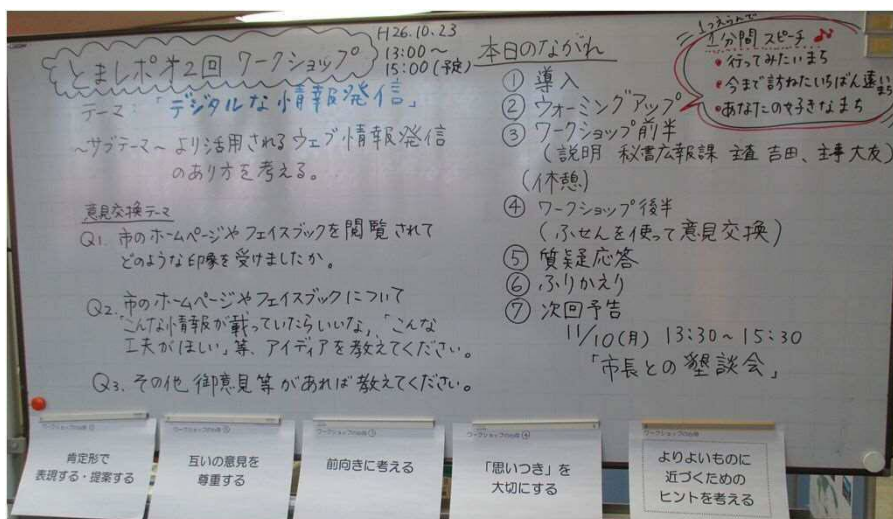 とまレポ 第2回 ワークショップ
H26.10.23
13:00～
15:00(予定)
テーマ:「デジタルな情報発信」
～サブテーマ～ より活用されるウェブ情報発信
のあり方を考える。
意見交換テーマ
Q1. 市のホームページやフェイスブックを閲覧されて
どのような印象を受けましたか。
Q2. 市のホームページやフェイスブックについて
「こんな情報が載っていたらいいな」、「こんな
工夫がほしい」等、アイディアを教えてください。
Q3. その他、御意見等があれば教えてください。
本日のながれ
① 導入
② ウォーミングアップ
③ ワークショップ前半
(説明 秘書広報課 主査 吉田、主事 大友)
(休憩)
④ ワークショップ後半
(ふせんを使って意見交換)
⑤ 質疑応答
⑥ ふりかえり
⑦ 次回予告
11/10(月) 13:30～15:30
「市長との懇談会」
1つえらんで
1分間 スピーチ
・行ってみたいまち
・今まで訪ねたいちばん遠いまち
・あなたの好きなまち
肯定形で
表現する・提案する
互いの意見を
尊重する
ワークショップの心得 ③
前向きに考える
ワークショップの心得 ④
「思いつき」を
大切にする
よりよいものに
近づくための
ヒントを考える